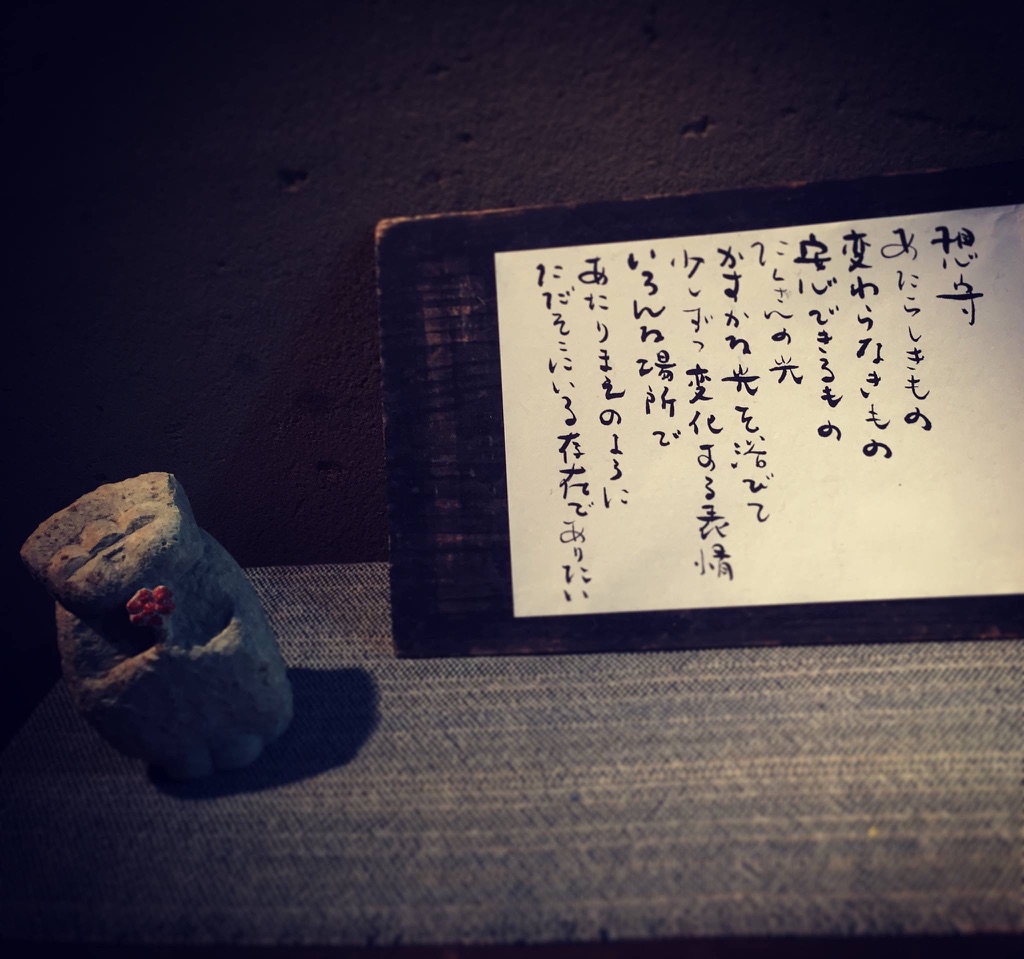 想守
あたらしきもの
変わらなきもの
安心できるもの
たくさんの光
かすかな光を浴びて
少しずつ変化する表情
いろんな場所で
あたりまえのように
ただそこにいる存在でありたい